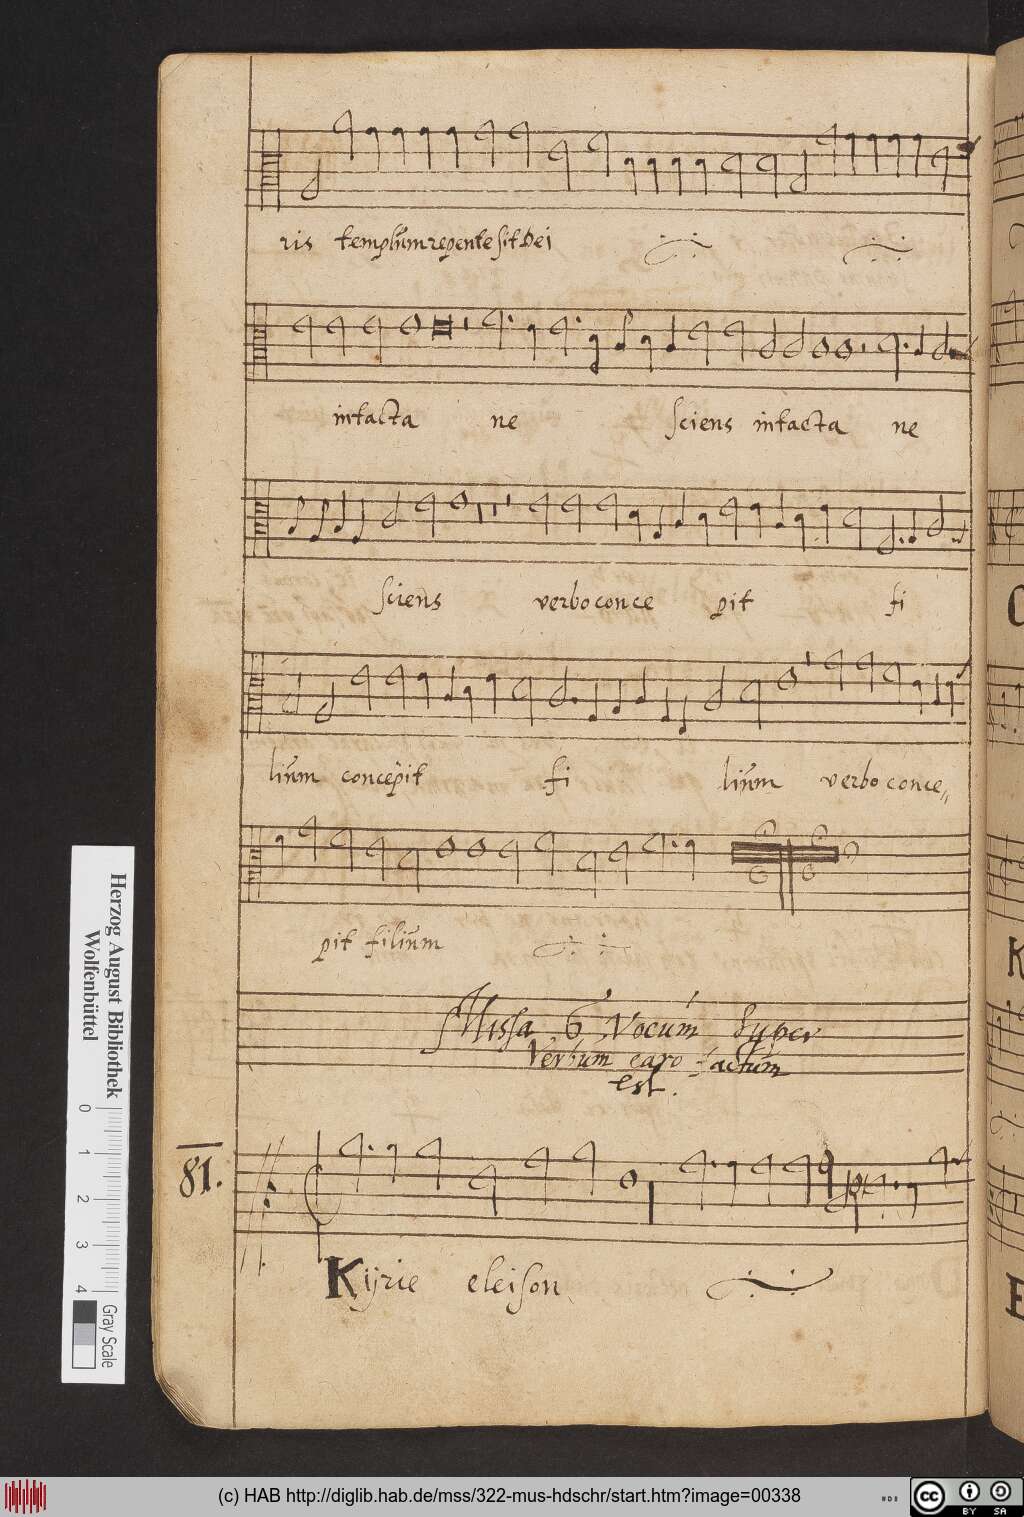 ris templūm repente fit Dei
intacta ne sciens intacta ne
sciens verbo conce pit fi
liūm concepit fi liūm verbo conce„
pit filiūm
Missa 6 Vocūm Super
Verbum caro factūm
est.
81.
Kijrie eleison
Herzog August Bibliothek
Wolfenbüttel
0 1 2 3 4
Gray Scale
(c) HAB http://diglib.hab.de/mss/322-mus-hdschr/start.htm?image=00338
cc BY SA